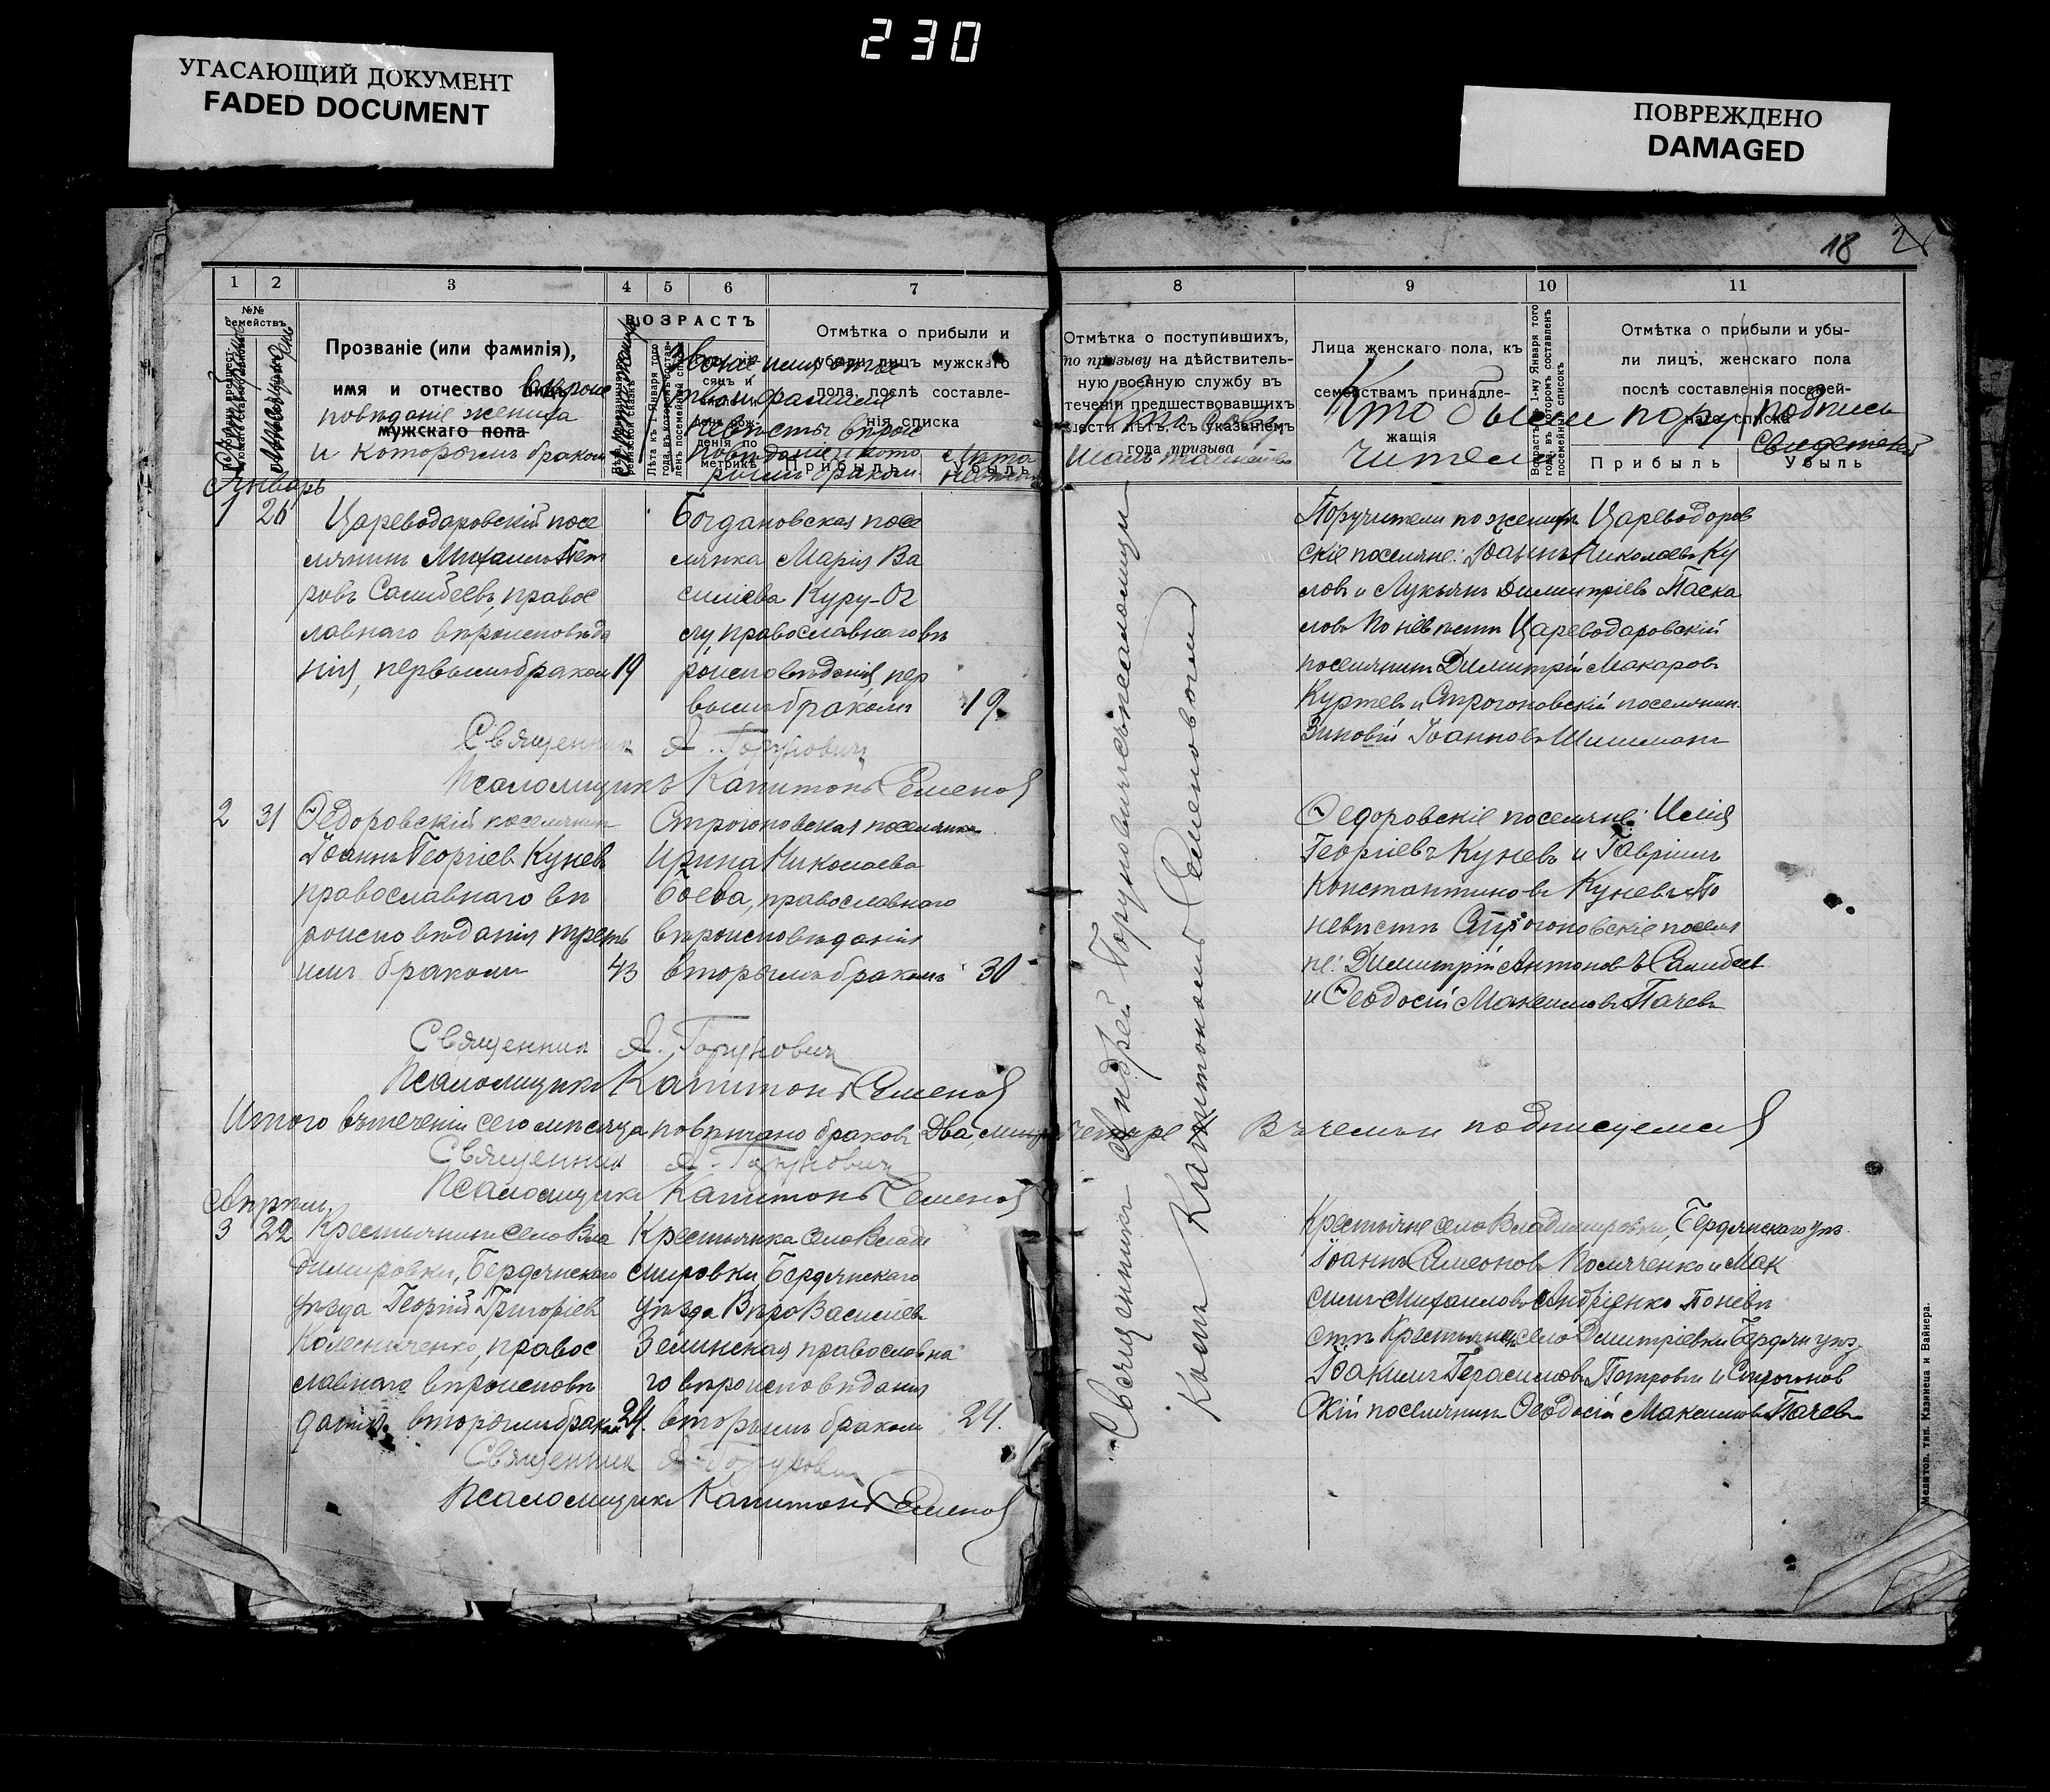 230
УГАСАЮЩИЙ ДОКУМЕНТ
FADED DOCUMENT
ПОВРЕЖДЕНО
DAMAGED
18
1 2 3 4 5 6 7
№№ семействъ
Прозваніе (или фамилія),
имя и отчество
мужского пола
повѣданіе жениха
и которымъ бракомъ
ВОЗРАСТЪ
Отмѣтка о прибыли и
убыли лицъ мужскаго
пола послѣ составле-
нія списка
Прибыль Убыль
Январь
1 26 Цареводаровскій посе
лянинъ Михаилъ Пет
ровъ Самбеевъ, правос
лавнаго вѣроисповѣда
нія, первымъ бракомъ 19
Богдановская посе
лянка Марія Ва
силіева Куру-Ог
лу, православнаго вѣ
роисповѣданія, пер
вымъ бракомъ 19
Священникъ А. Горуновичъ
Псаломщикъ Капитонъ Семеновъ
2 31 Ѳедоровскій поселянинъ
Іоаннъ Георгіевъ Куневъ
православнаго вѣ
роисповѣданія треть
имъ бракомъ 43
Строгоновская поселянка
Ирина Николаева
Боева, православнаго
вѣроисповѣданія
вторымъ бракомъ 30
Священникъ А. Горуновичъ
Псаломщикъ Капитонъ Семеновъ
Итого въ теченіи сего мѣсяца повѣнчано браковъ два,
Священникъ А. Горуновичъ
Псаломщикъ Капитонъ Семеновъ
Апрѣль
3 22 Крестьянинъ села Вла
димировки, Бердянскаго
уѣзда Георгій Григоріевъ
Колесниченко, правос
лавнаго вѣроисповѣ
данія вторымъ бракомъ 24.
Крестьянка села Влади
мировки Бердянскаго
уѣзда Вѣра Васильева
Зелинская православна
го вѣроисповѣданія
вторымъ бракомъ 24.
Священникъ А. Горуновичъ
Псаломщикъ Капитонъ Семеновъ
8 9 10 11
Отмѣтка о поступившихъ,
по призыву на дѣйствитель-
ную военную службу въ
теченіи предшествовавшихъ
шести лѣтъ, съ указаніемъ
года призыва
Лица женскаго пола, къ
семействамъ принадле-
жащія
Отмѣтка о прибыли и убы-
ли лицъ, женскаго пола
послѣ составленія посемей-
наго списка
Прибыль Убыль
Кто были пору
чители
подпись
свидетелей
Священникъ Андрей Горуновичъ съ псаломщи
комъ Капитономъ Семеновомъ
Поручители по женихѣ Цареводаров
скіе поселяне: Іоаннъ Николаевъ Ку
ловъ и Лукьянъ Димитріевъ Паска
ловъ По невѣстѣ Цареводаровскій
поселянинъ Димитрій Макаровъ
Куртевъ и Строгоновскій поселянин.
Зиновій Іоанновъ Шишманъ
Ѳедоровскіе поселяне: Илія
Георгіевъ Куневъ и Гавріилъ
Константиновъ Куневъ По
невѣстѣ Строгоновскіе поселя
не: Димитрій Антоновъ Самбеевъ
и Ѳеодосій Максимовъ Пачевъ
В чемъ и подписуемся
Крестьяне села Владимировки, Бердянскаго уѣз.
Іоаннъ Симеоновъ Количенко и Мак
симъ Михаиловъ Андріенко По невѣ
стѣ Крестьянинъ села Димитріевки Бердян уѣз.
Іоакимъ Герасимовъ Петровъ и Строгонов
скій поселянинъ Ѳеодосій Максимовъ Пачевъ
Мелитоп. тип. Казинеца и Вайнера.